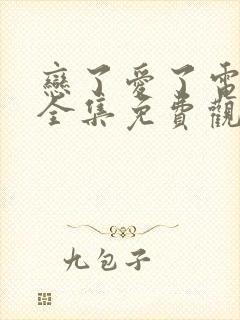 戀了愛了電
全集免費觀
九包子